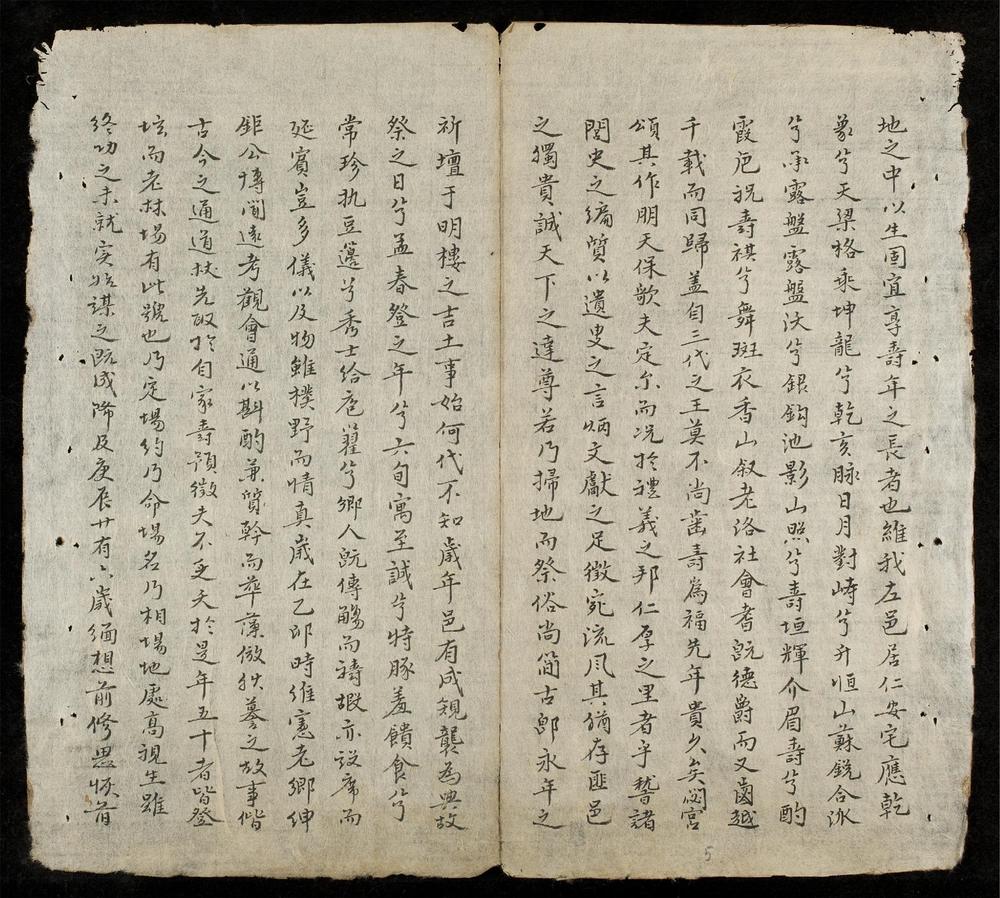 地之中以生固宜享壽年之長者也維我左邑居仁安宅應乾
象兮天梁格乘坤龍兮乾亥脉日月對峙兮升恒山蘇鋭合派
兮承露盤露盤沃兮銀鈎池影山照兮壽垣輝介眉壽兮酌
霞巵祝壽祺兮舞斑衣香山叙老洛社會耆既德爵而又齒越
千載而同歸盖自三代之王莫不尚齒壽為福先年貴久矣閟宮
頌其作朋天保歌夫定尔而况於禮義之邦仁厚之里者乎諸
閭史之編質以遺叟之言炳文獻之足徵宛流風其猶存匪邑
之獨貴誠天下之達尊若乃掃地而祭俗尚簡古郎永年之
祈壇于明樓之吉土事始何代不知歲年邑有成規襲為典故
祭之日兮孟春登之年兮六旬寓至誠兮特豚羞饋食兮
常珍執豆籩兮秀士給庖翟兮鄉人既傳觴而禱嘏亦設席而
延賓豈多儀以及物雖樸野而情真歲在乙卯時維憲老鄉紳
鉅公博聞遠考觀會通以斟酌兼質幹而萃藻倣狄墓之故事偕
古今之通道杖先取於自家壽預徵夫不更夫於是年五十者皆登
壇而老林場有此號也乃定場約乃命場名乃相場地處高視生雖
終功之未就实始謀之既成降及庚辰廿有六歲緬想前修思恢前
5